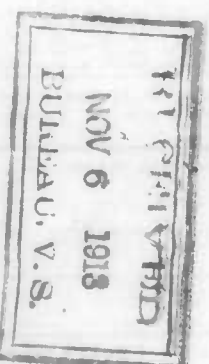 RECEIVED
NOV 6 1918
BUREAU. V. S.